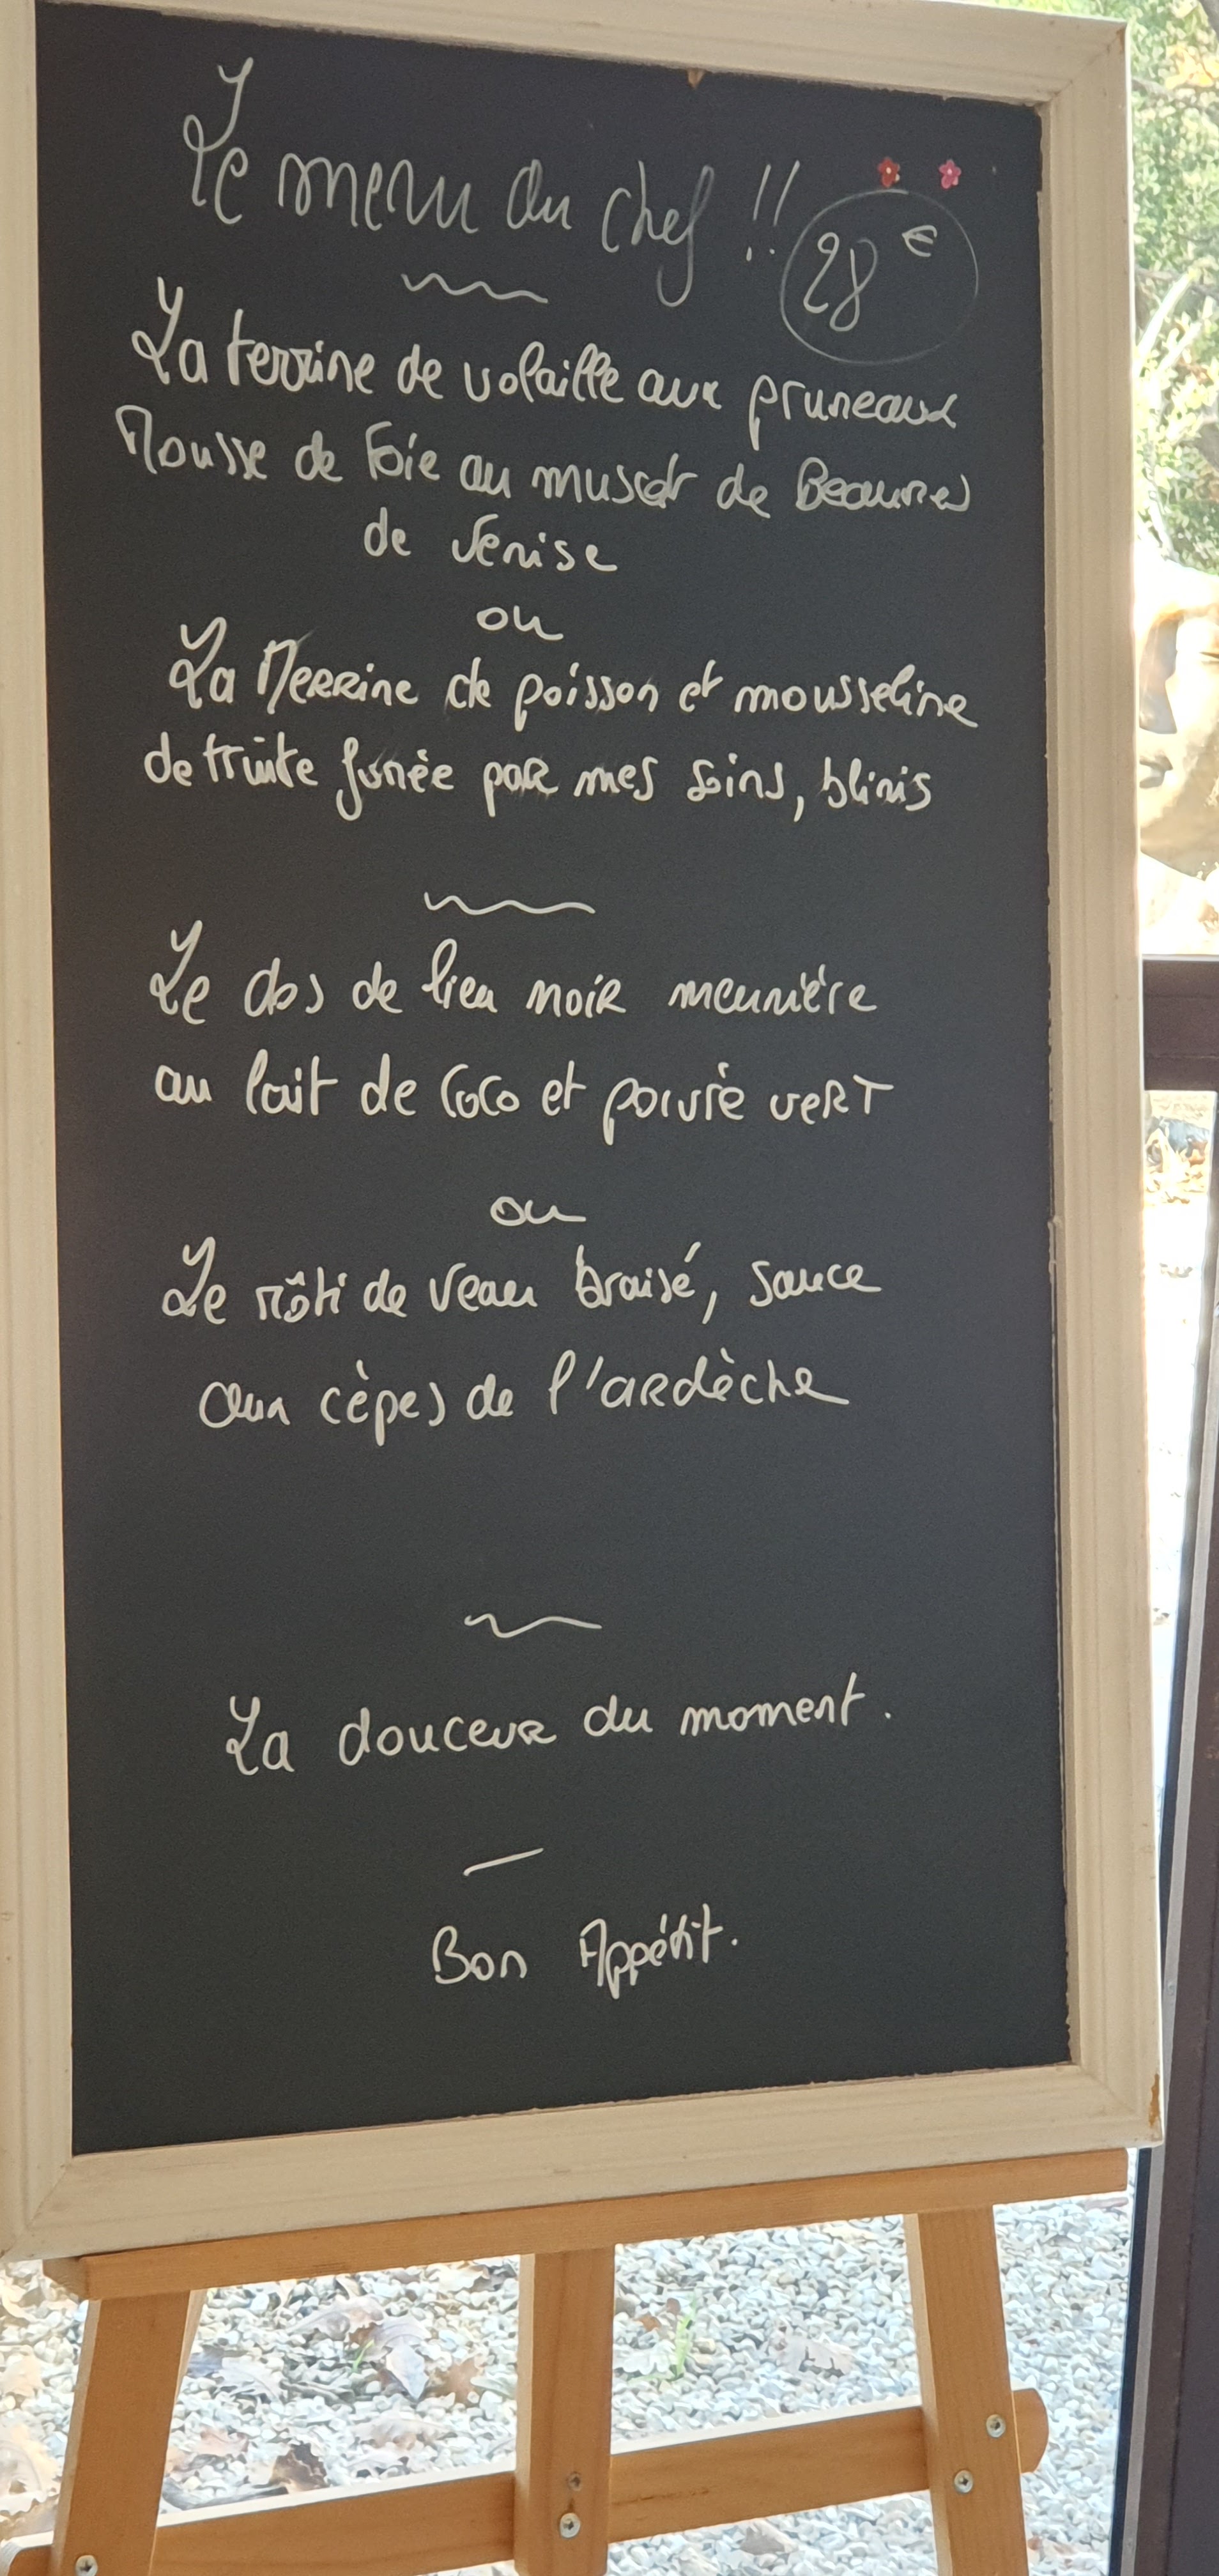 Le menu du chef !!
28 €
La terrine de volaille aux pruneaux
Mousse de Foie au muscat de Beaumes
de Venise
ou
La Terrine de poisson et mousseline
de truite fumée par mes soins, blinis
Le dos de lieu noir meunière
au lait de Coco et poivre vert
ou
Le rôti de veau braisé, sauce
aux cèpes de l'ardèche
La douceur du moment.
Bon Appétit.